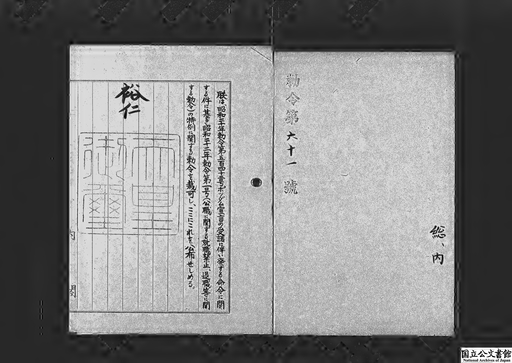 勅令第六十一號
総、内
朕は、昭和二十年勅令第五百四十二号ポツダム宣言の受諾に伴い発する命令に関
する件に基く昭和二十二年勅令第一号(公職に関する就職禁止、退職等に関
する勅令)の特例に関する勅令を裁可し、ここにこれを公布せしめる。
裕仁
天皇
御璽
内
閣
国立公文書館
National Archives of Japan